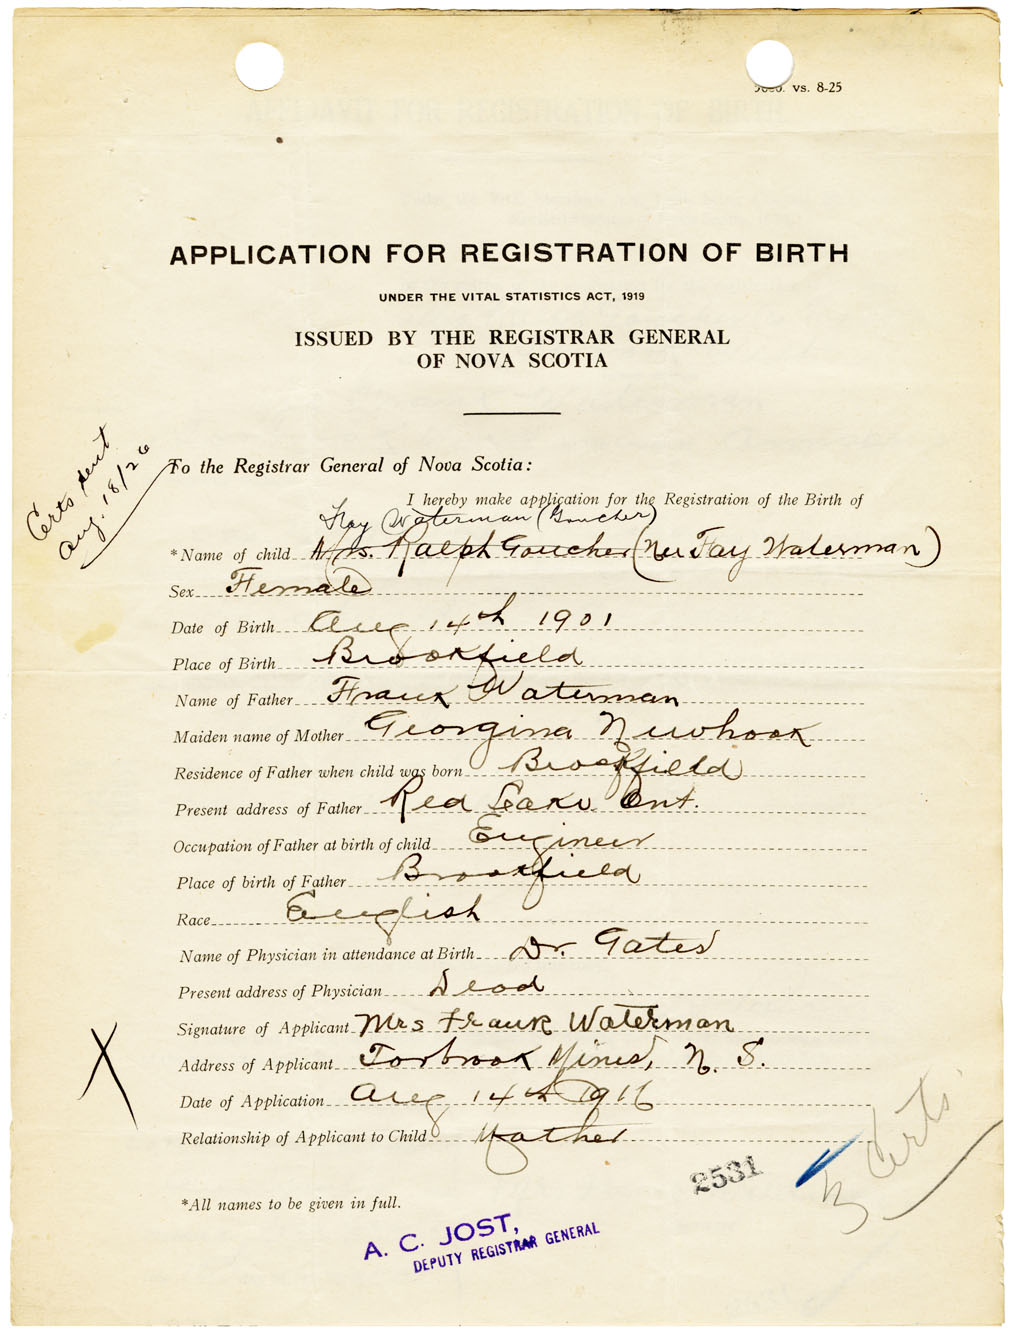 vs. 8-25
APPLICATION FOR REGISTRATION OF BIRTH
UNDER THE VITAL STATISTICS ACT, 1919
ISSUED BY THE REGISTRAR GENERAL
OF NOVA SCOTIA
Certs sent
Aug. 18/26
To the Registrar General of Nova Scotia:
I hereby make application for the Registration of the Birth of
Flay Waterman (Goucher)
*Name of child Mrs. Ralph Goucher (Nee Flay Waterman)
Sex Female
Date of Birth Aug 14th 1901
Place of Birth Brookfield
Name of Father Frank Waterman
Maiden name of Mother Georgina Newhook
Residence of Father when child was born Brookfield
Present address of Father Red Lake Ont.
Occupation of Father at birth of child Engineer
Place of birth of Father Brookfield
Race English
Name of Physician in attendance at Birth Dr. Gates
Present address of Physician Dead
Signature of Applicant Mrs Frank Waterman
Address of Applicant Torbrook Mines, N. S.
Date of Application Aug 14th 1916
Relationship of Applicant to Child Mother
2531
3 Certs.
*All names to be given in full.
A. C. JOST,
DEPUTY REGISTRAR GENERAL